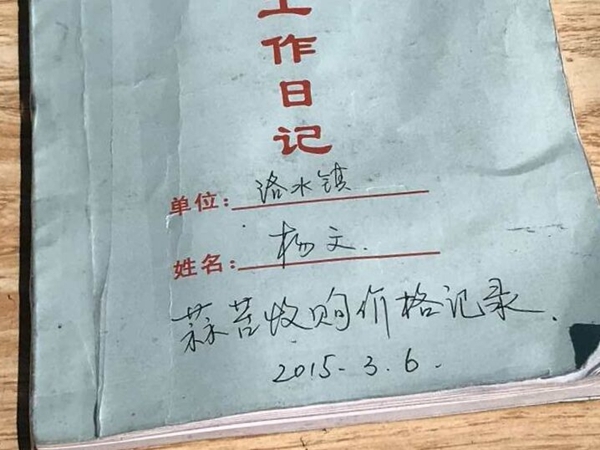 工作日记
单位：洛水镇
姓名：杨文.
蒜苔收购价格记录.
2015.3.6.